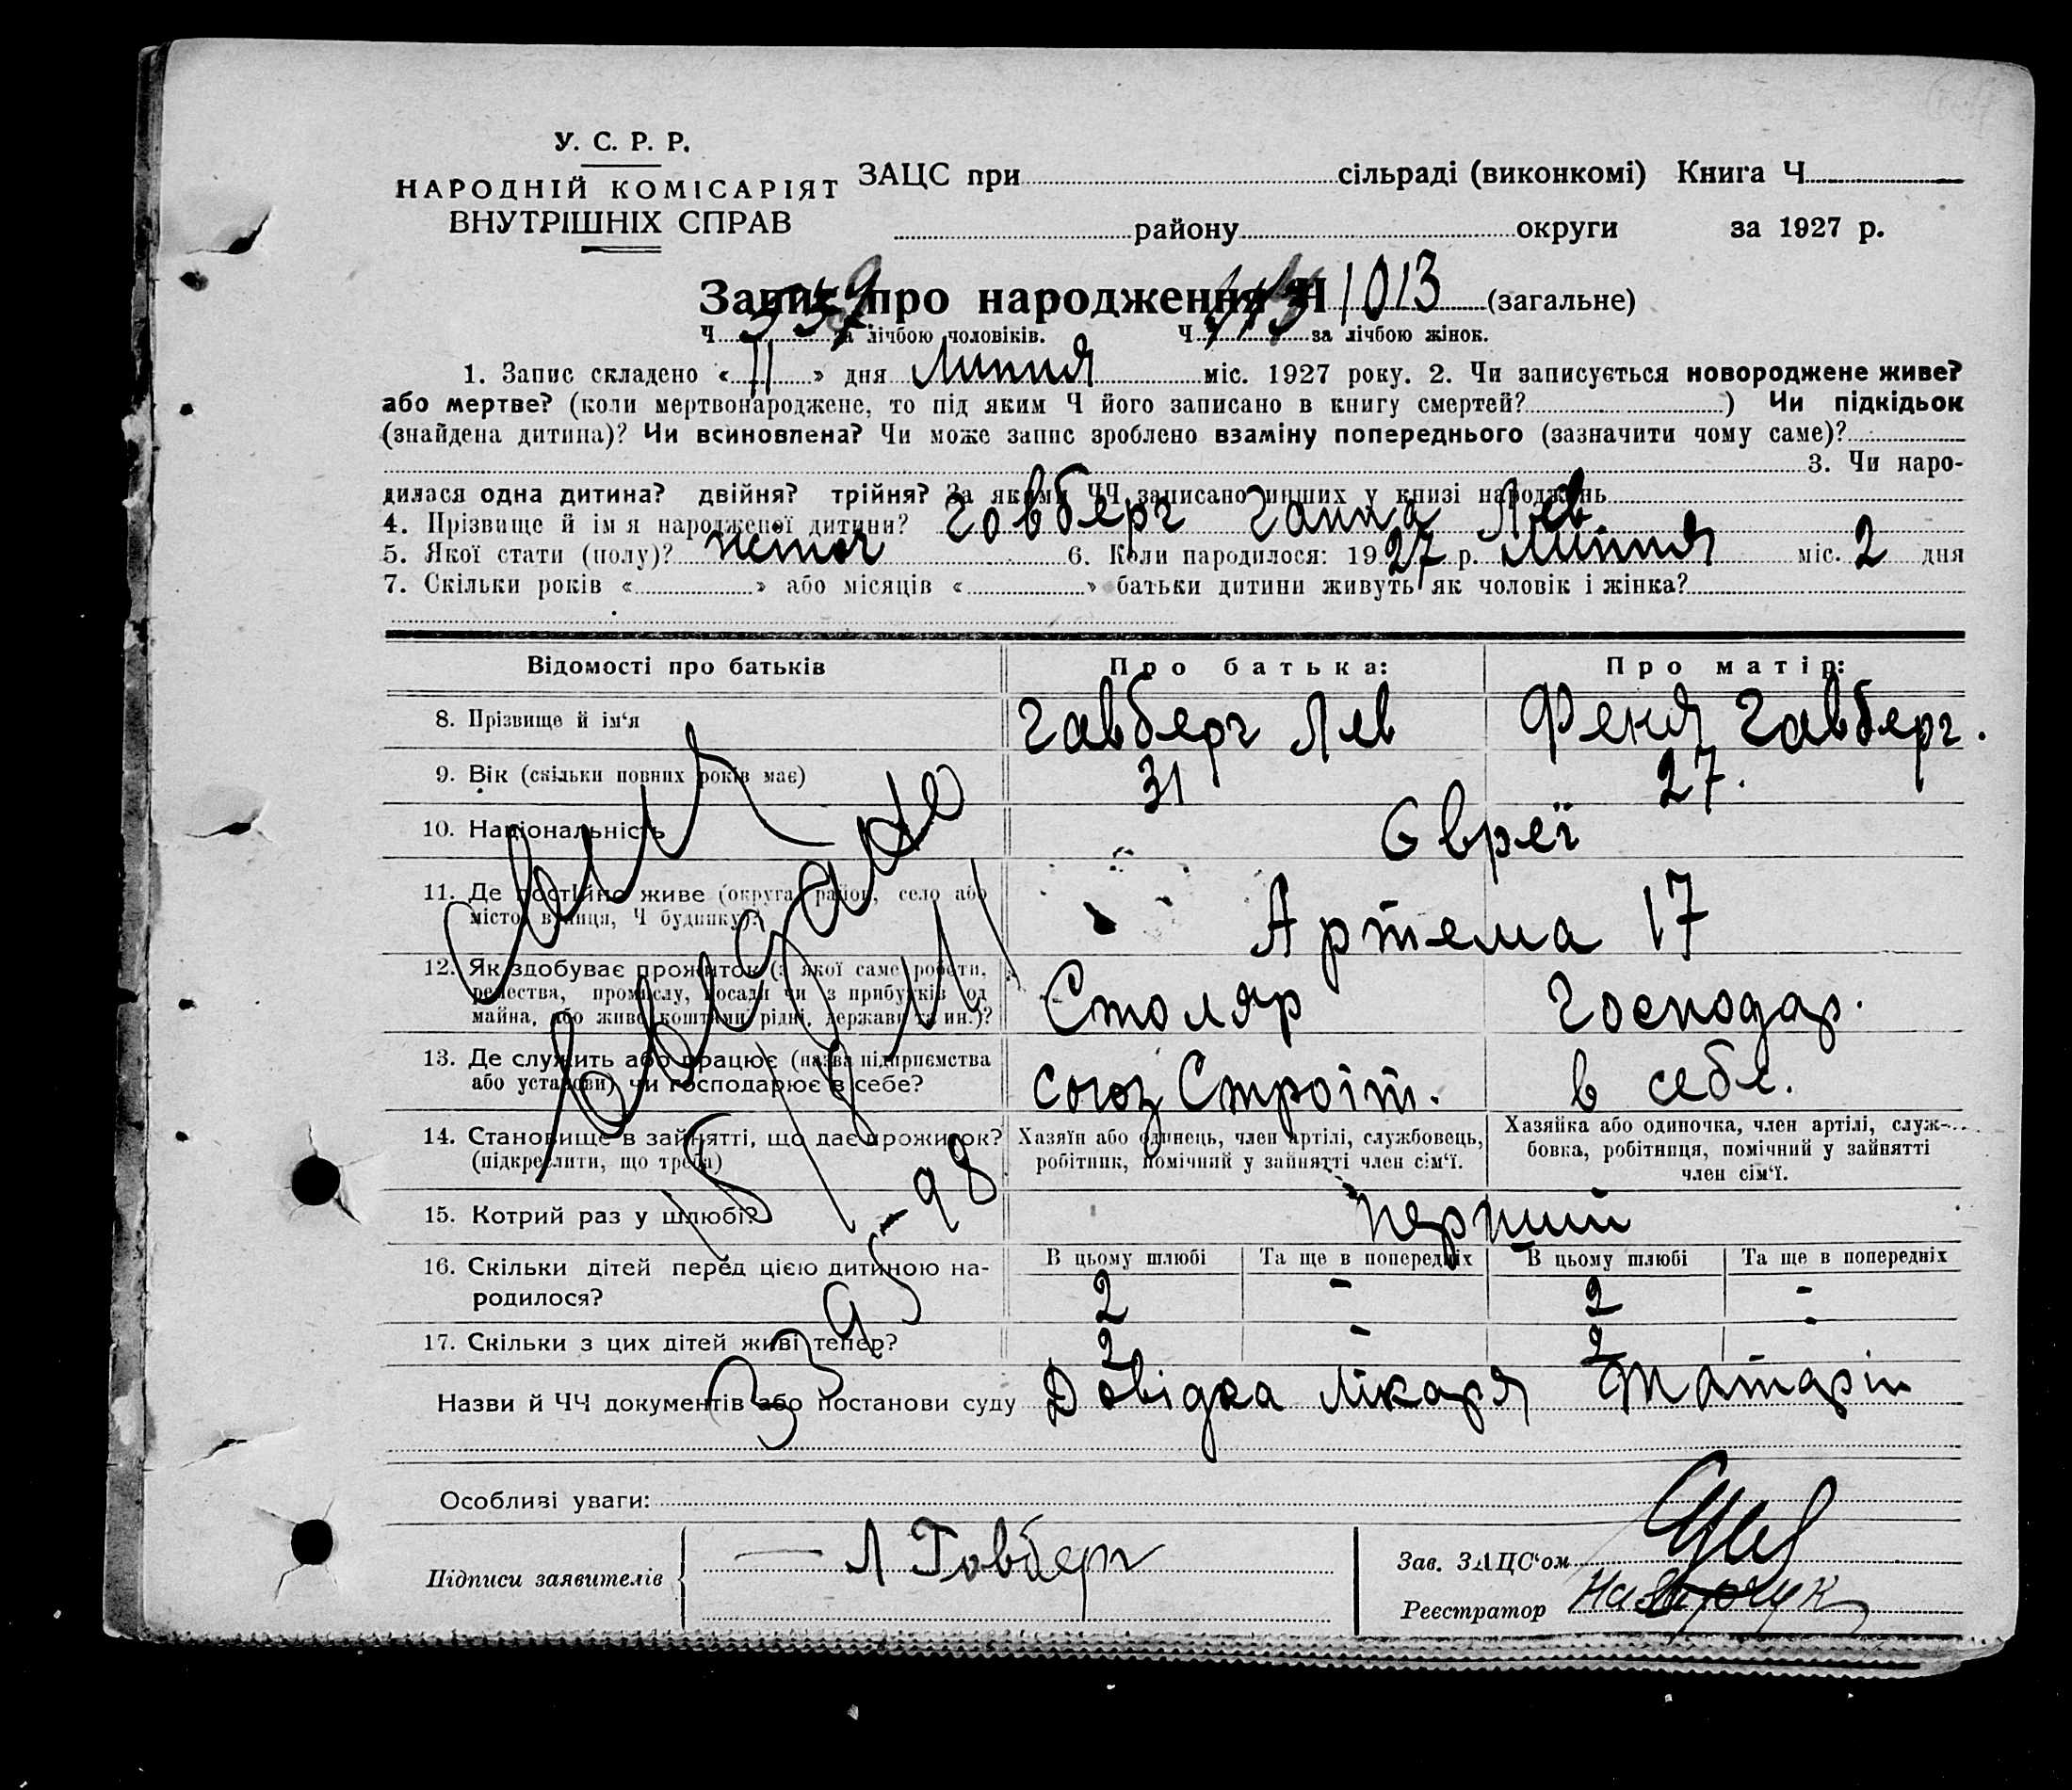 У. С. Р. Р.
НАРОДНІЙ КОМІСАРІЯТ
ВНУТРІШНІХ СПРАВ
ЗАЦС при сільраді (виконкомі) Книга Ч
району округи за 1927 р.
Запис про народження Ч 1013 (загальне)
Ч за лічбою чоловіків. Ч за лічбою жінок.
1. Запис складено «11» дня Липня міс. 1927 року. 2. Чи записується новороджене живе?
або мертве? (коли мертвонароджене, то під яким Ч його записано в книгу смертей? ) Чи підкідьок
(знайдена дитина)? Чи всиновлена? Чи може запис зроблено взаміну попереднього (зазначити чому саме)?
3. Чи наро-
дилася одна дитина? двійня? трійня? За якими ЧЧ записано инших у книзі народжень
4. Прізвище й імя народженої дитини? Говберг Ганна Лев.
5. Якої стати (полу)? жіноч 6. Коли народилося: 1927 р. Липня міс. 2 дня
7. Скільки років « » або місяців « » батьки дитини живуть як чоловік і жінка?
Відомості про батьків Про батька: Про матір:
8. Прізвище й ім‘я Гавберг Лев Феня Гавберг.
9. Вік (скільки повних років має) 31 27.
10. Національність Євреї
11. Де постійно живе (округа, район, село або
місто, вулиця, Ч будинку)? Артема 17
12. Як здобуває прожиток (з якої саме роботи,
ремества, промислу, посади чи з прибутків од
майна, або живе коштами рідні, держави та ин.)? Столяр Господар.
13. Де служить або працює (назва підприємства
або установи), чи господарює в себе? союз Строїт. в себе.
14. Становище в зайнятті, що дає прожиток?
(підкреслити, що треба)
Хазяїн або одинець, член артілі, службовець,
робітник, помічний у зайнятті член сім‘ї.
Хазяйка або одиночка, член артілі, служ-
бовка, робітниця, помічний у зайнятті
член сім‘ї.
15. Котрий раз у шлюбі? перший
16. Скільки дітей перед цією дитиною на-
родилося?
В цьому шлюбі Та ще в попередніх В цьому шлюбі Та ще в попередніх
2 - 2 -
17. Скільки з цих дітей живі тепер? 2 - 2 -
Назви й ЧЧ документів або постанови суду Довідка лікаря
Особливі уваги:
Підписи заявителів Л Говберг
Зав. ЗАЦС‘ом
Реєстратор